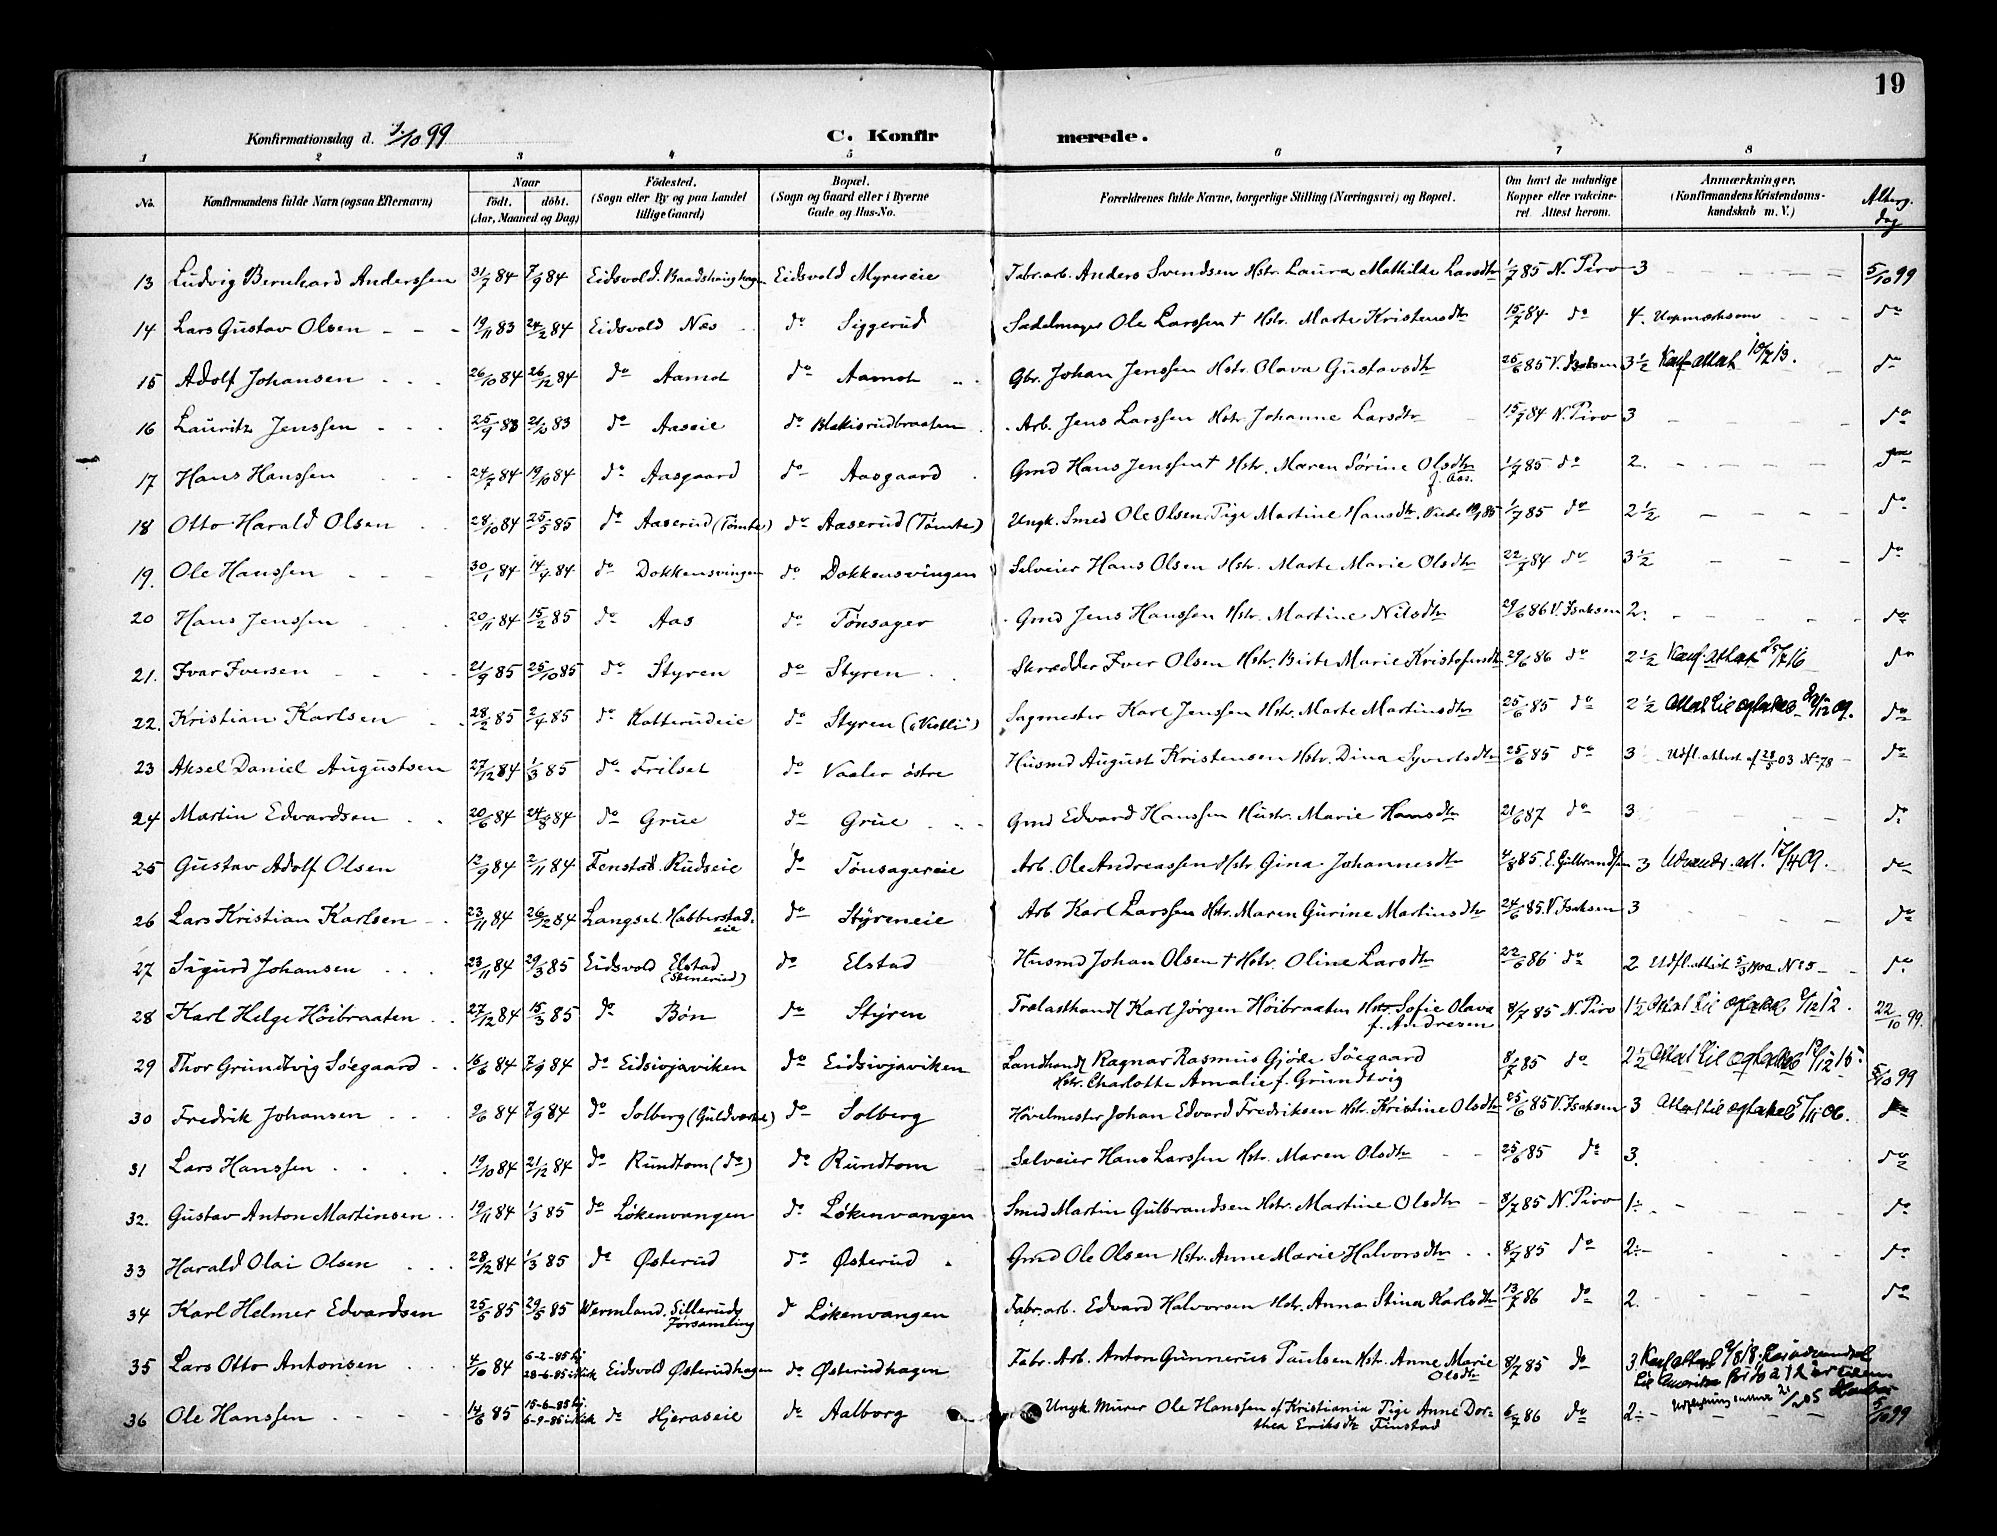 19
Konfirmationsdag d. 1/10 99
C. Konfirmerede.
1 2 3 4 5 6 7 8
No. Konfirmandens fulde Navn (ogsaa Efternavn) Naar født. døbt. (Aar, Maaned og Dag) Fødested. (Sogn eller By og paa Landet tillige Gaard) Bopæl. (Sogn og Gaard eller i Byerne Gade og Hus-No. Forældrenes fulde Navne, borgerlige Stilling (Næringsvei) og Bopæl. Om havt de naturlige Kopper eller vakcineret. Attest herom. Anmærkninger, (Konfirmandens Kristendomskundskab m. V.) Altergdag
13 Ludvig Bernhard Anderssen 31/7 84 7/9 84 Eidsvold. Baadshaughagen Eidsvold Myrereie Fabr. arb. Anders Svendsen Hstr. Laura Mathilde Larsdtr 1/7 85 N. Piro 3 5/10 99
14 Lars Gustav Olsen 19/11 83 24/2 84 Eidsvold Næs do Siggerud Sadelmager Ole Larssen † Hstr. Marte Kristensdtr 15/7 84 do 4. Uopmærksom do
15 Adolf Johansen 26/10 84 26/12 84 do Aamot do Aamot Gbr. Johan Jenssen Hstr. Olava Gustavsdtr 25/6 85 V. Isaksen 3 1/2 Konf. attest 13. do
16 Lauritz Jenssen 25/9 83 21/10 83 do Aaseie do Blekisrudbraaten Arb. Jens Larssen Hstr. Johanne Larsdtr 15/7 84 N. Piro 3 do
17 Hans Hanssen 24/7 84 19/10 84 do Aasgaard do Aasgaard Gmd Hans Jenssen † Hstr. Maren Sørine Olsdtr f. Aas. 1/7 85 do 2. do
18 Otto Harald Olsen 28/10 84 25/5 85 do Aaserud (Tømte) do Aaserud (Tømte) Ungk. Smed Ole Olsen, Pige Martine Hansdtr. 1/7 85 do 2 1/2 do
19. Ole Hanssen 30/1 84 14/4 84 do Dokkensvingen do Dokkensvingen Selveier Hans Olsen Hstr. Marte Marie Olsdtr 22/7 84 do 3 1/2 do
20 Hans Jenssen 20/11 84 15/2 85 do Aas do Tønsager Gmd Jens Hanssen Hstr. Martine Nilsdtr 29/6 86 V. Isaksen 2. do
21. Ivar Iversen 21/9 85 25/10 85 do Styren do Styren Skrædder Iver Olsen Hstr. Birte Marie Kristofersdtr 29/6 86 do 2 1/2 Konf. attest 16 do
22. Kristian Karlsen 28/2 85 2/4 85 do Katterudeie do Styren Sagmester Karl Jenssen Hstr. Marte Martinsdtr 25/6 85 do 2 1/2 Attest til ægteskab 12 09. do
23 Aksel Daniel Augustsen 27/12 84 1/3 85 do Frilset do Vaaler østre Husmd August Kristensen Hstr. Dina Syvertsdtr 25/6 85 do 3 Udfl. attest af 28/5 03 No 78 do
24 Martin Edvardsen 20/6 84 24/8 84 do Grue do Grue Gmd Edvard Hanssen Hustr. Marie Hansdtr 21/6 87 do 3 do
25 Gustav Adolf Olsen 12/9 84 2/11 84 Fenstad Rudseie do Tønsagereie Arb. Ole Andreassen Hstr Gina Johannesdtr 4/8 85 E. Gulbrandsen 3 Udvandr. att. 17/4 09. do
26 Lars Kristian Karlsen 23/11 84 26/12 84 Langset. Habberstadeie do Styreneie Arb Karl Larssen Hstr. Maren Gurine Martinsdtr 24/6 85 V. Isaksen 3 do
27 Sigurd Johansen 23/11 84 29/3 85 Eidsvold Elstad (Stenerud) do Elstad Husmd Johan Olsen † Hstr. Oline Larsdtr 22/6 86 do 2 Udfl. attest 5/3 No 5 do
28 Karl Helge Höibraaten 27/12 84 15/3 85 do Bøn do Styren Trælasthandl Karl Jørgen Höibraaten Hstr. Sofie Olava f. Andresen 8/7 85 N. Piro 1 1/2 Attest til ægteskab 12 12. 22/10 99.
29 Thor Grundtvig Søegaard 16/6 84 7/9 84 do Eidsivjaviken do Eidsivjaviken Landhandl Ragnar Rasmus Gjøde Søegaard Hstr. Charlotte Amalie f. Grundtvig 8/7 85 do 2 1/2 Attest til ægteskab 12 15. 5/10 99
30 Fredrik Johansen 9/6 84 7/9 84 do Solberg (Guldværket) do Solberg Høvelmester Johan Edvard Fredriksen Hstr. Kristine Olsdtr 25/6 85 V. Isaksen 3 Attest til ægteskab 5/11 06. do
31 Lars Hanssen 19/10 84 21/12 84 do Rundtom (do) do Rundtom Selveier Hans Larssen Hstr. Maren Olsdtr 25/6 85 do 3. do
32. Gustav Anton Martinsen 19/11 84 1/3 85 do Løkenvangen do Løkenvangen Smed Martin Gulbrandsen Hstr. Martine Olsdtr 8/7 85 N. Piro 1 do
33 Harald Olai Olsen 28/12 84 1/3 85 do Østerud do Østerud Gmd Ole Olsen Hstr. Anne Marie Halvorsdtr 8/7 85 do 2 do
34 Karl Helmer Edvardsen 25/5 85 29/5 85 Wermland. Silleruds Forsamling do Løkenvangen Fabr. arb. Edvard Halvorsen Hstr. Anna Stina Karlsdtr 13/7 86 do 2. do
35 Lars Otto Antonsen 4/10 84 6-2-85 hj 28-6-85 i Kirk Eidsvold Østerudhagen do Østerudhagen Fabr. Arb. Anton Gunnerius Paulsen Hstr. Anne Marie Olsdtr 8/7 85 do 3. Konf. attest
36 Ole Hanssen 14/6 85 15-6-85 hj. 6-9-85 i Kirk do Hjeraseie do Aalborg Ungk. Murer Ole Hanssen af Kristiania Pige Anne Dorthea Eriksdtr Finstad 6/7 86 do 2 5/10 99